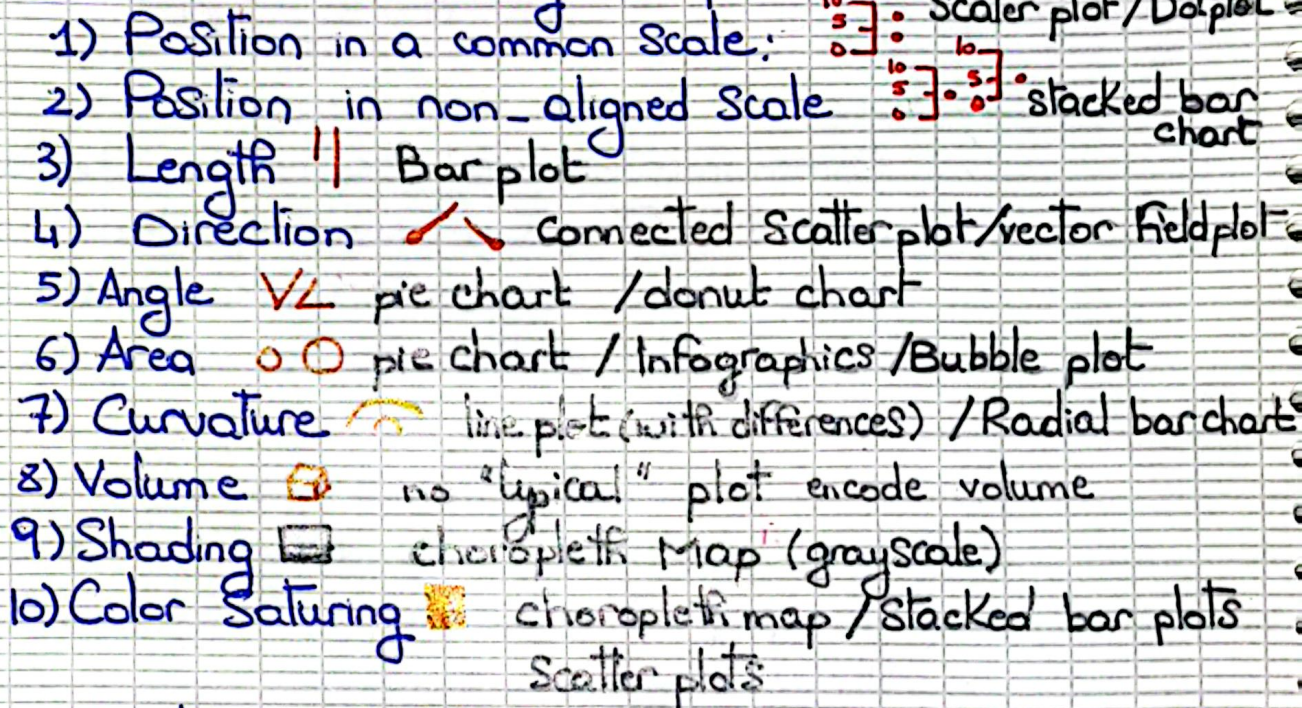 1) Position in a common scale: 10 5 0 Scatter plot / Dotplot
2) Position in non-aligned Scale 10 5 0 10 5 0 stacked bar
chart
3) Length Bar plot
4) Direction Connected Scatterplot/vector Fieldplot
5) Angle pie chart /donut chart
6) Area pie chart / Infographics /Bubble plot
7) Curvature line plot (with differences) /Radial barchart
8) Volume no "typical" plot encode volume
9) Shading choropleth Map (grayscale)
10) Color Saturing choropleth map /Stacked bar plots
Scatter plots